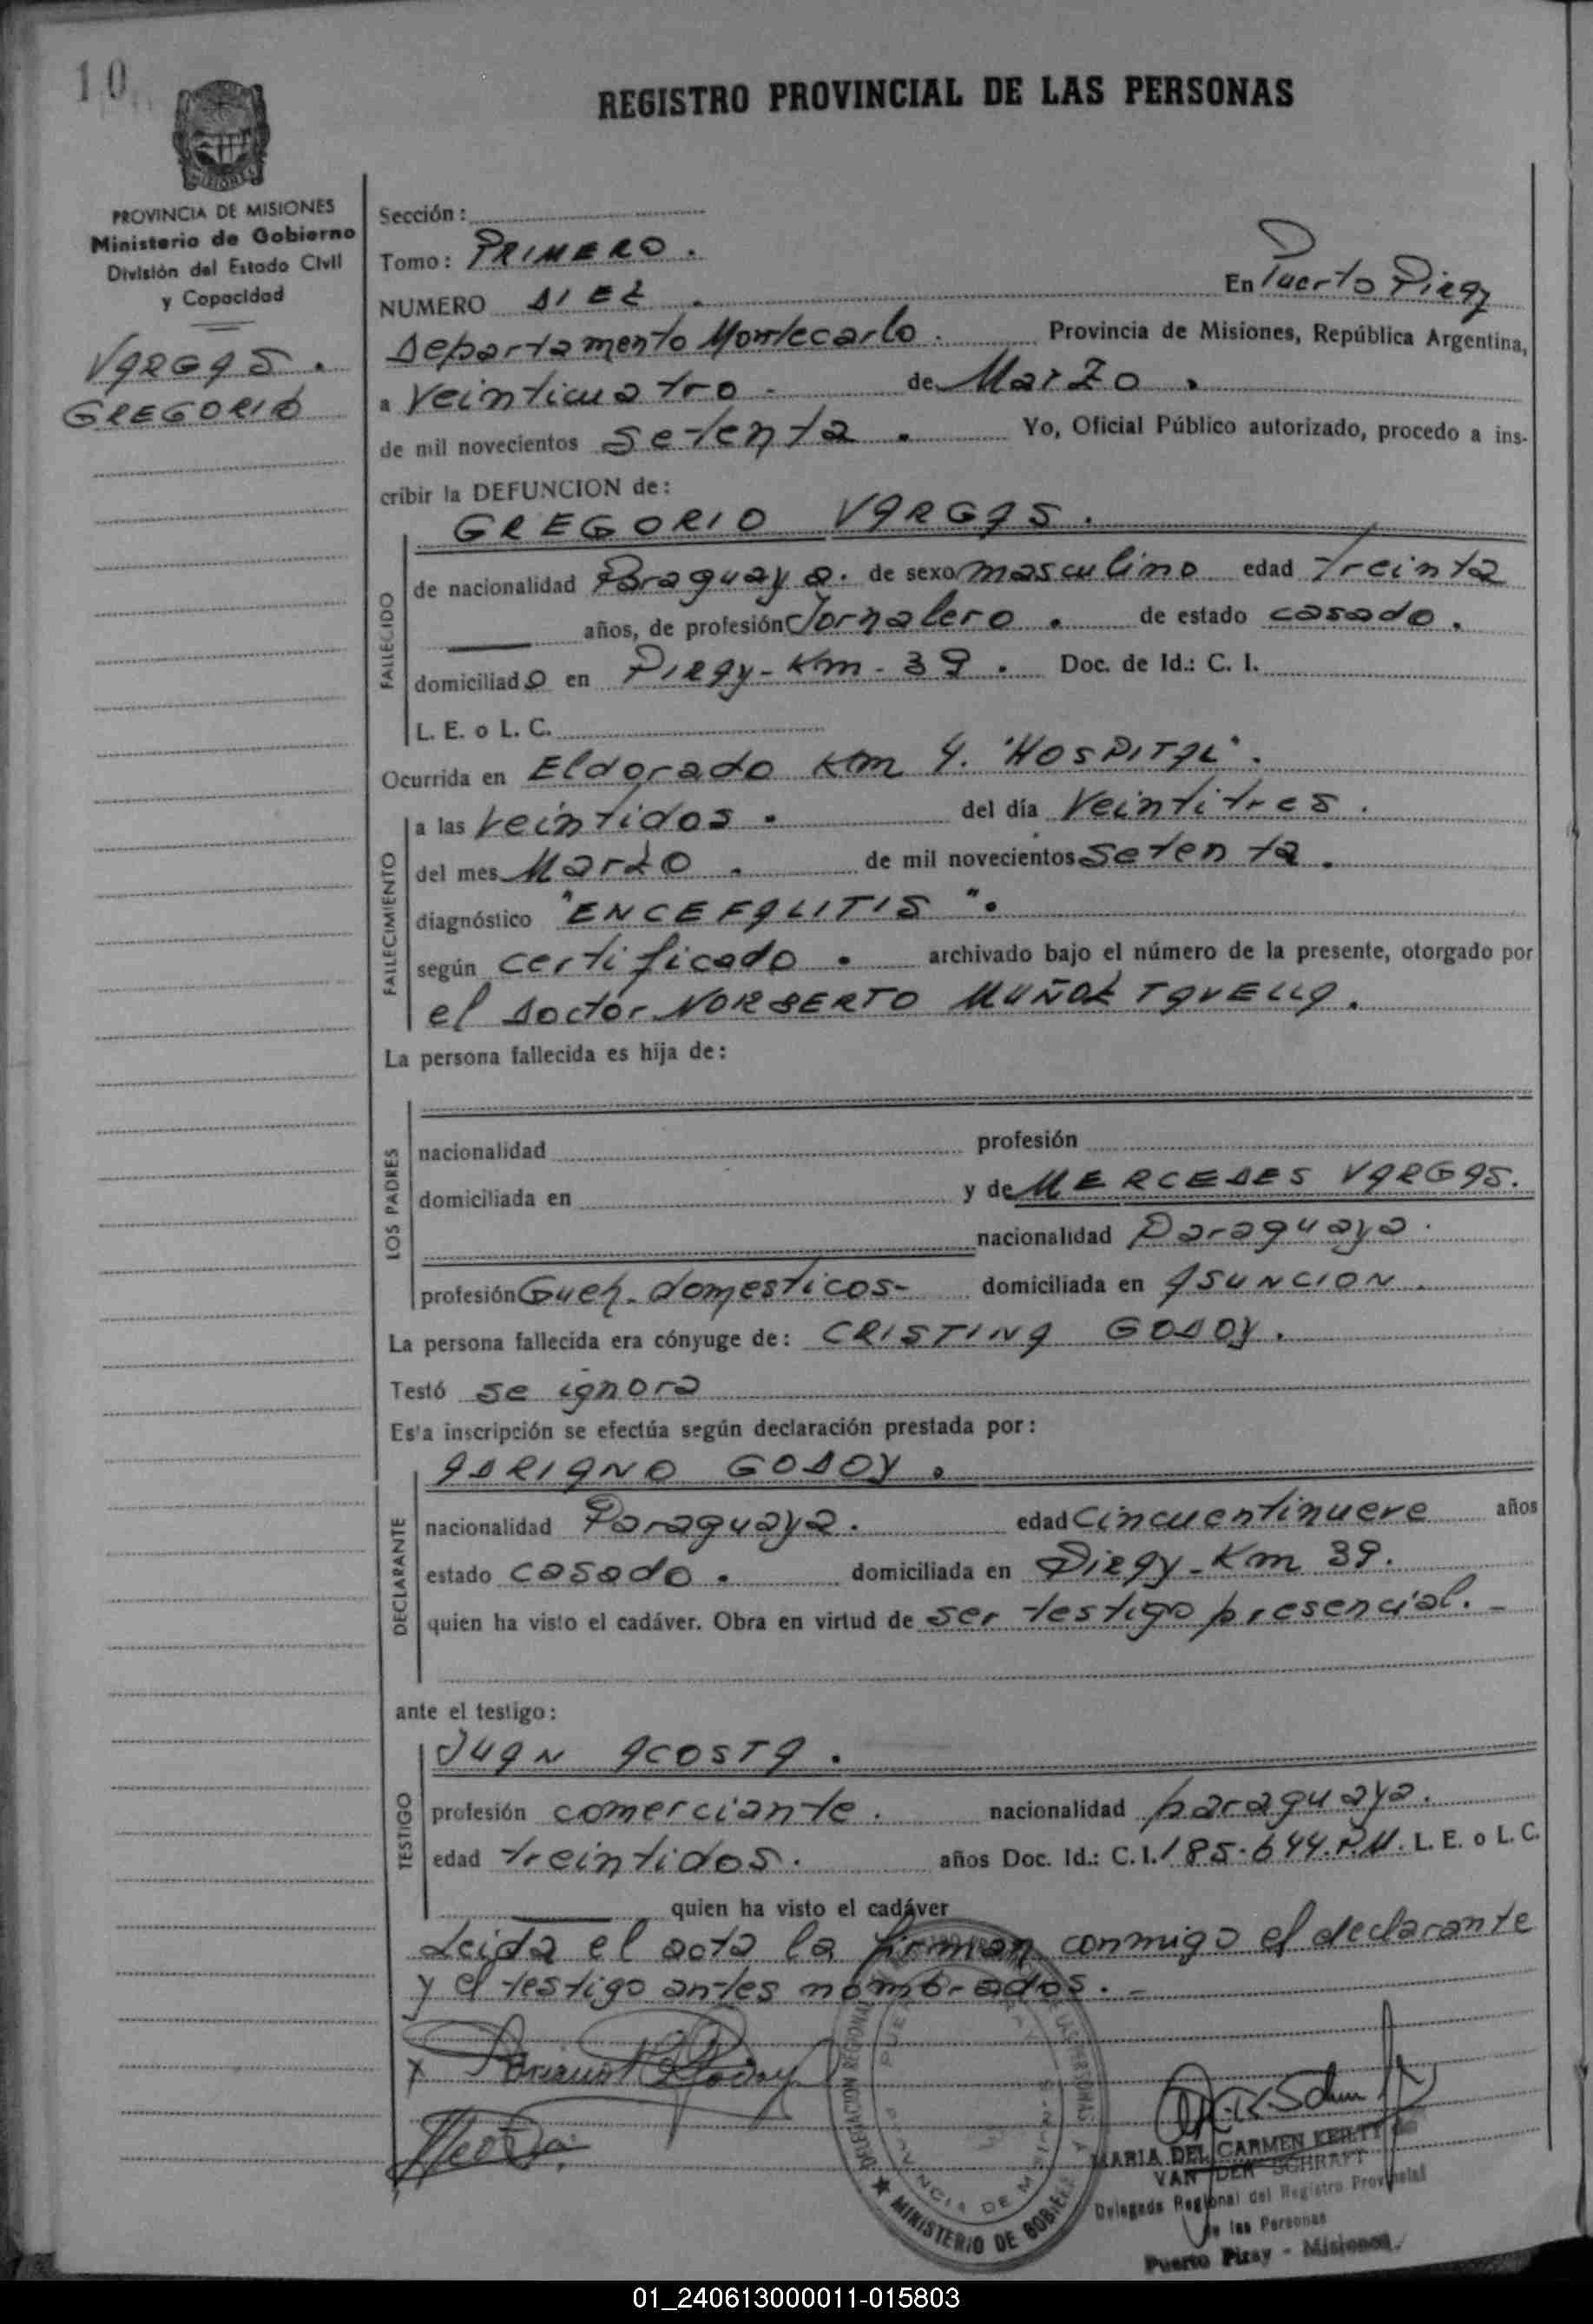 10
REGISTRO PROVINCIAL DE LAS PERSONAS
MISIONES
PROVINCIA DE MISIONES
Ministerio de Gobierno
División del Estado Civil
y Capacidad
VARGAS.
GREGORIO
Sección:
Tomo: PRIMERO.
NUMERO DIEZ. En Puerto Piray
Departamento Montecarlo. Provincia de Misiones, República Argentina,
a veinticuatro. de Marzo.
de mil novecientos setenta. Yo, Oficial Público autorizado, procedo a ins-
cribir la DEFUNCION de:
GREGORIO VARGAS.
FALLECIDO
de nacionalidad Paraguaya. de sexo masculino edad treinta
años, de profesión Jornalero. de estado casado.
domiciliado en PIRAY-Km-39. Doc. de Id.: C. I.
L. E. o L. C.
Ocurrida en Eldorado Km 4. "HOSPITAL".
FALLECIMIENTO
a las veintidos. del día veintitres.
del mes Marzo. de mil novecientos setenta.
diagnóstico "ENCEFALITIS".
según certificado. archivado bajo el número de la presente, otorgado por
el Doctor NORBERTO MUÑOZ TAVELLA.
La persona fallecida es hija de:
LOS PADRES
nacionalidad profesión
domiciliada en y de MERCEDES VARGAS.
nacionalidad Paraguaya.
profesión Queh. domesticos- domiciliada en ASUNCION.
La persona fallecida era cónyuge de: CRISTINA GODOY.
Testó se ignora
Esta inscripción se efectúa según declaración prestada por:
ADRIANO GODOY.
DECLARANTE
nacionalidad Paraguaya. edad cincuentinueve años
estado casado. domiciliada en Piray-Km 39.
quien ha visto el cadáver. Obra en virtud de ser testigo presencial.-
ante el testigo:
JUAN ACOSTA.
TESTIGO
profesión comerciante. nacionalidad paraguaya.
edad treintidos. años Doc. Id.: C. I. 185.644.P.M. L. E. o L. C.
quien ha visto el cadáver
Leida el acta la firman conmigo el declarante
y el testigo antes nombrados.-
DELEGACION REGIONAL
PROVINCIA DE MISIONES
★ MINISTERIO DE GOBIERNO
MARIA DEL CARMEN KEILTY de
VAN DER SCHRAFT
Delegada Regional del Registro Provincial
de las Personas
Puerto Piray - Misiones.
01_240613000011-015803